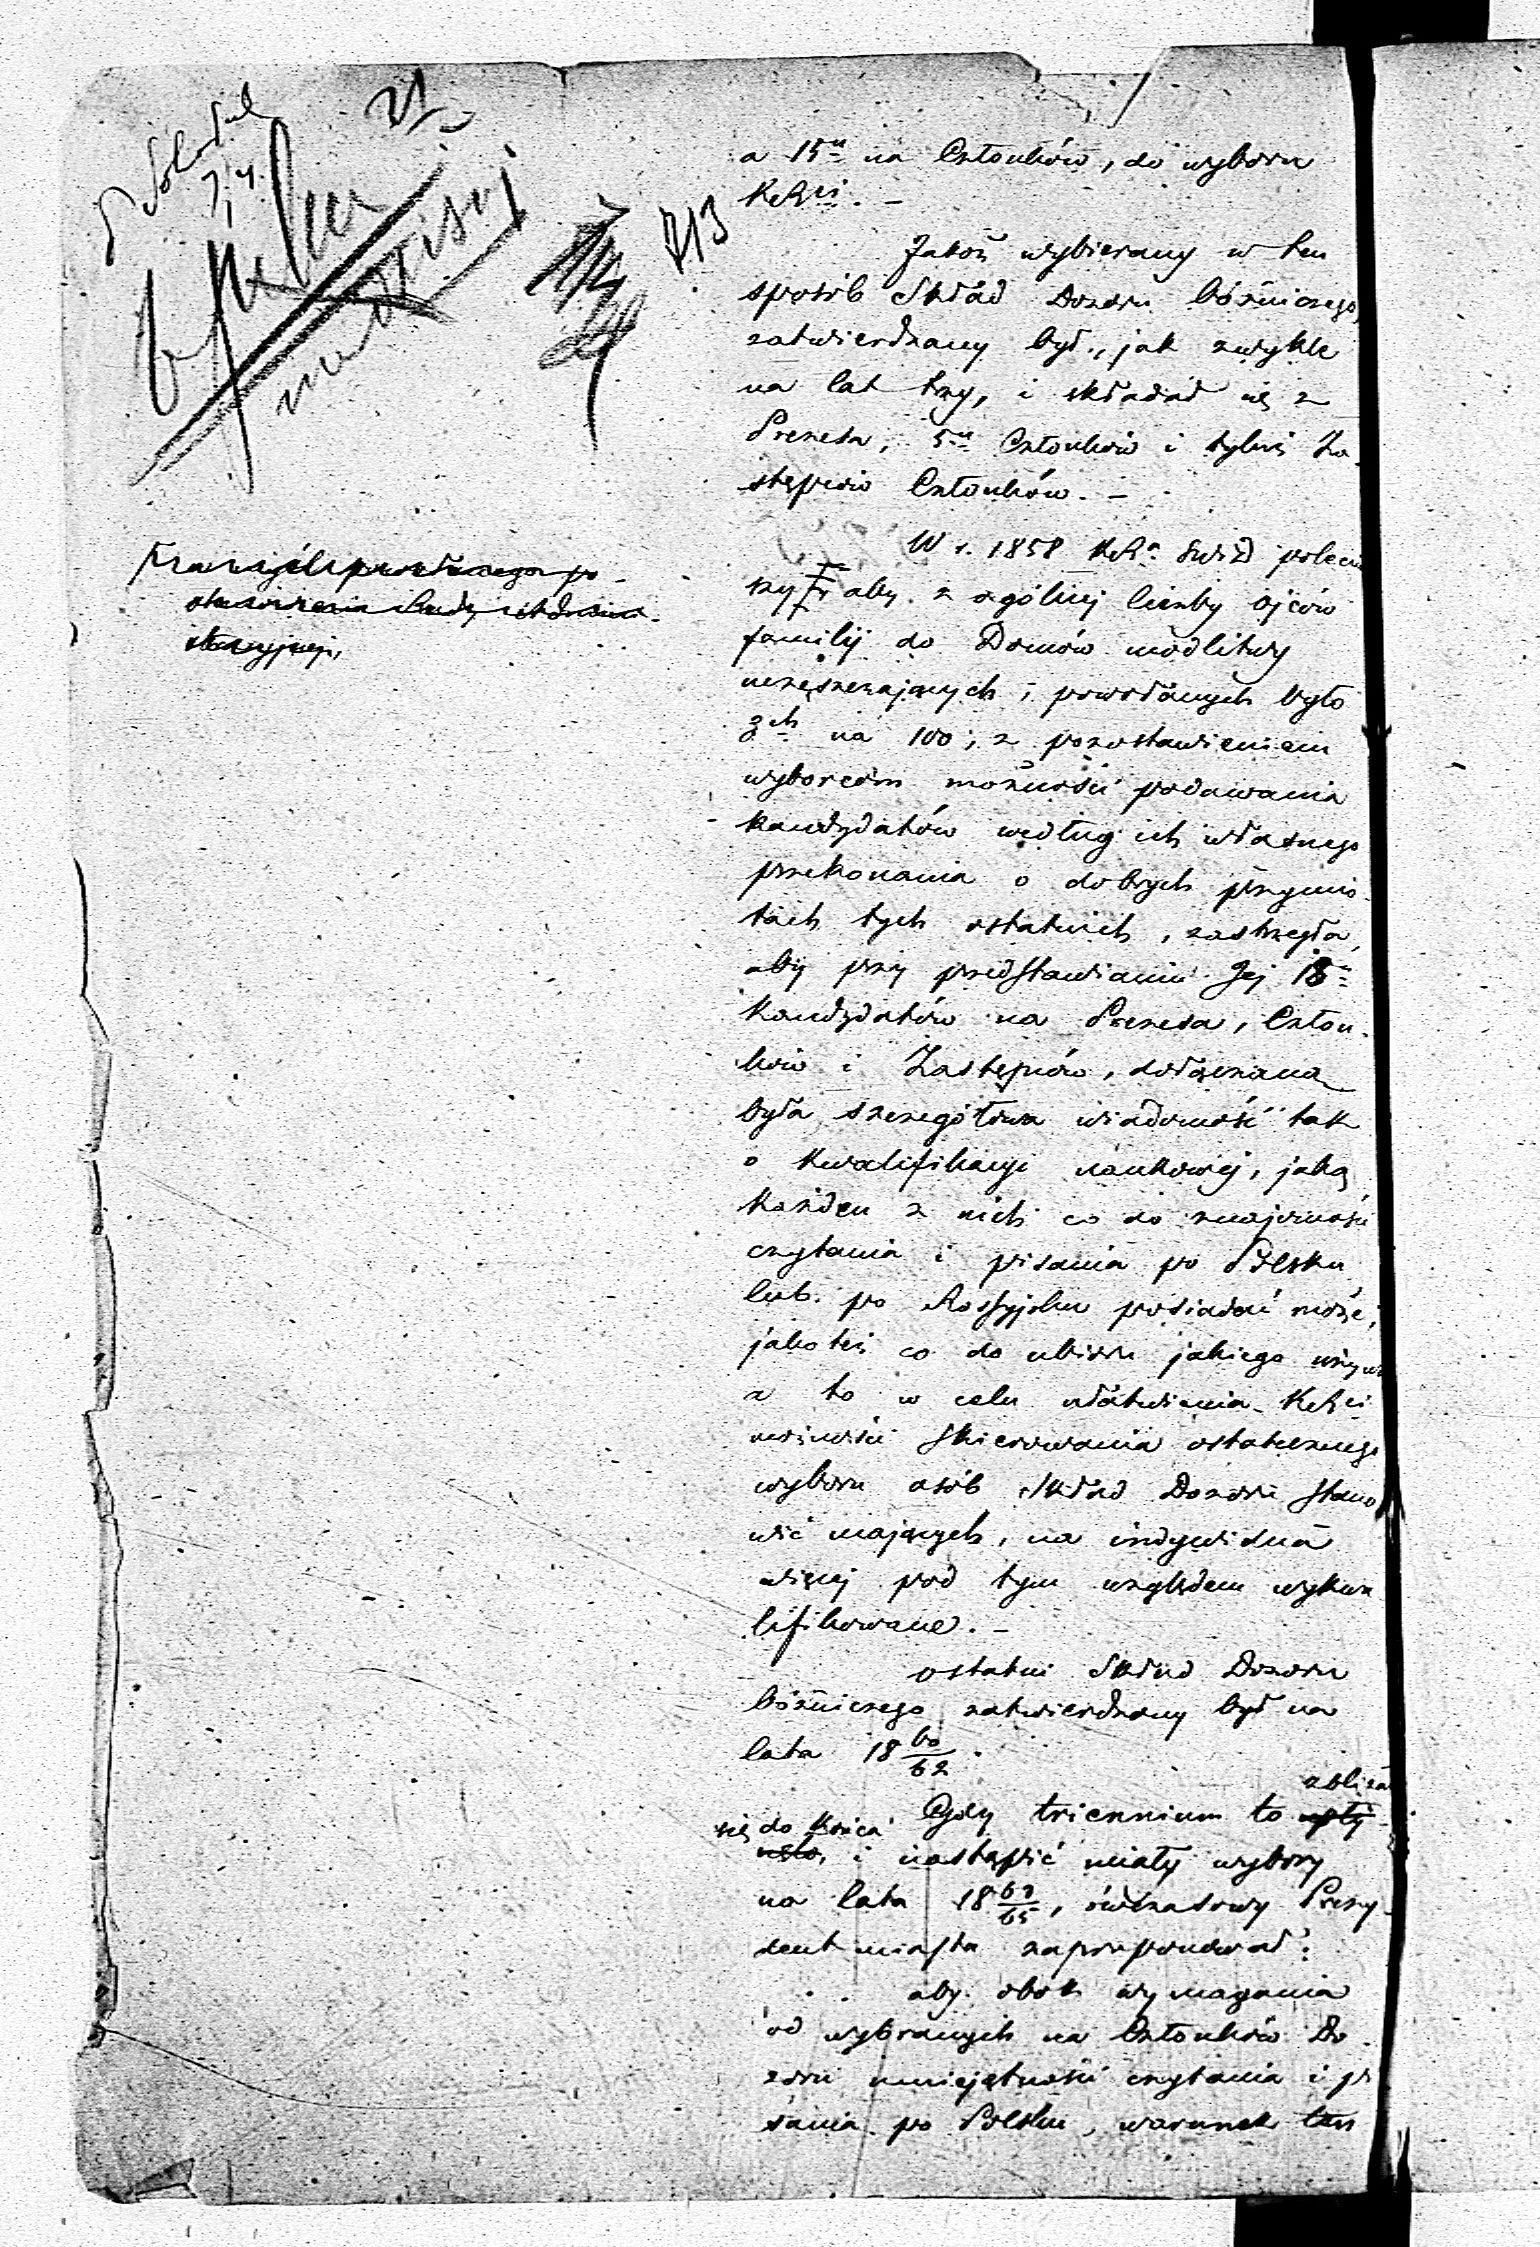 21
713
a 15u na Członków, do wyboru
KRSci. –
Jakoż wybierany w ten
sposób Skład Dozoru bóżniczego,
zatwierdzany był, jak zwykle
na lat trzy, i składał się z
Prezesa, 5u Członków i tyluż Za-
stępców Członków. –
W r. 1858 poleci
wszy aby z ogólnej liczby ojców
familij do Domów modlitwy
uczęszczających, powołanych było
3ch na 100, z pozostawieniem
wyborcom możności podawania
kandydatów według ich własnego
przekonania o dobrych przymio-
tach tych ostatnich, zastrzegła,
aby przy przedstawianiu Jej 18u
Kandydatów na Prezesa, Człon-
ków i Zastępców, dołączana
była szczegółowa wiadomość tak
o kwalifikacyi naukowej, jaką
każden z nich co do znajomości
czytania i pisania po Polsku
lub po Rossyjsku posiadać może,
jakoteż co do ubioru jakiego używa
a to w celu ułatwienia KRSci
możności skierowania ostatecznego
wyboru osób Skład Dozoru stano
wić mających, na indywidua
więcej pod tym względem wykwa
lifikowane. –
Ostatni Skład Dozoru
bóżniczego zatwierdzany był na
lata 18 60/62.
zbliżał
Gdy triennium to upły-
się do końca
nęło, i nastąpić miały wybory
na lata 18 63/65, ówczasowy Prezy-
dent miasta zaproponował:
aby obok wymagania
od wybranych na Członków Do-
zoru umiejętności czytania i pi
sania po Polsku, warunek ten